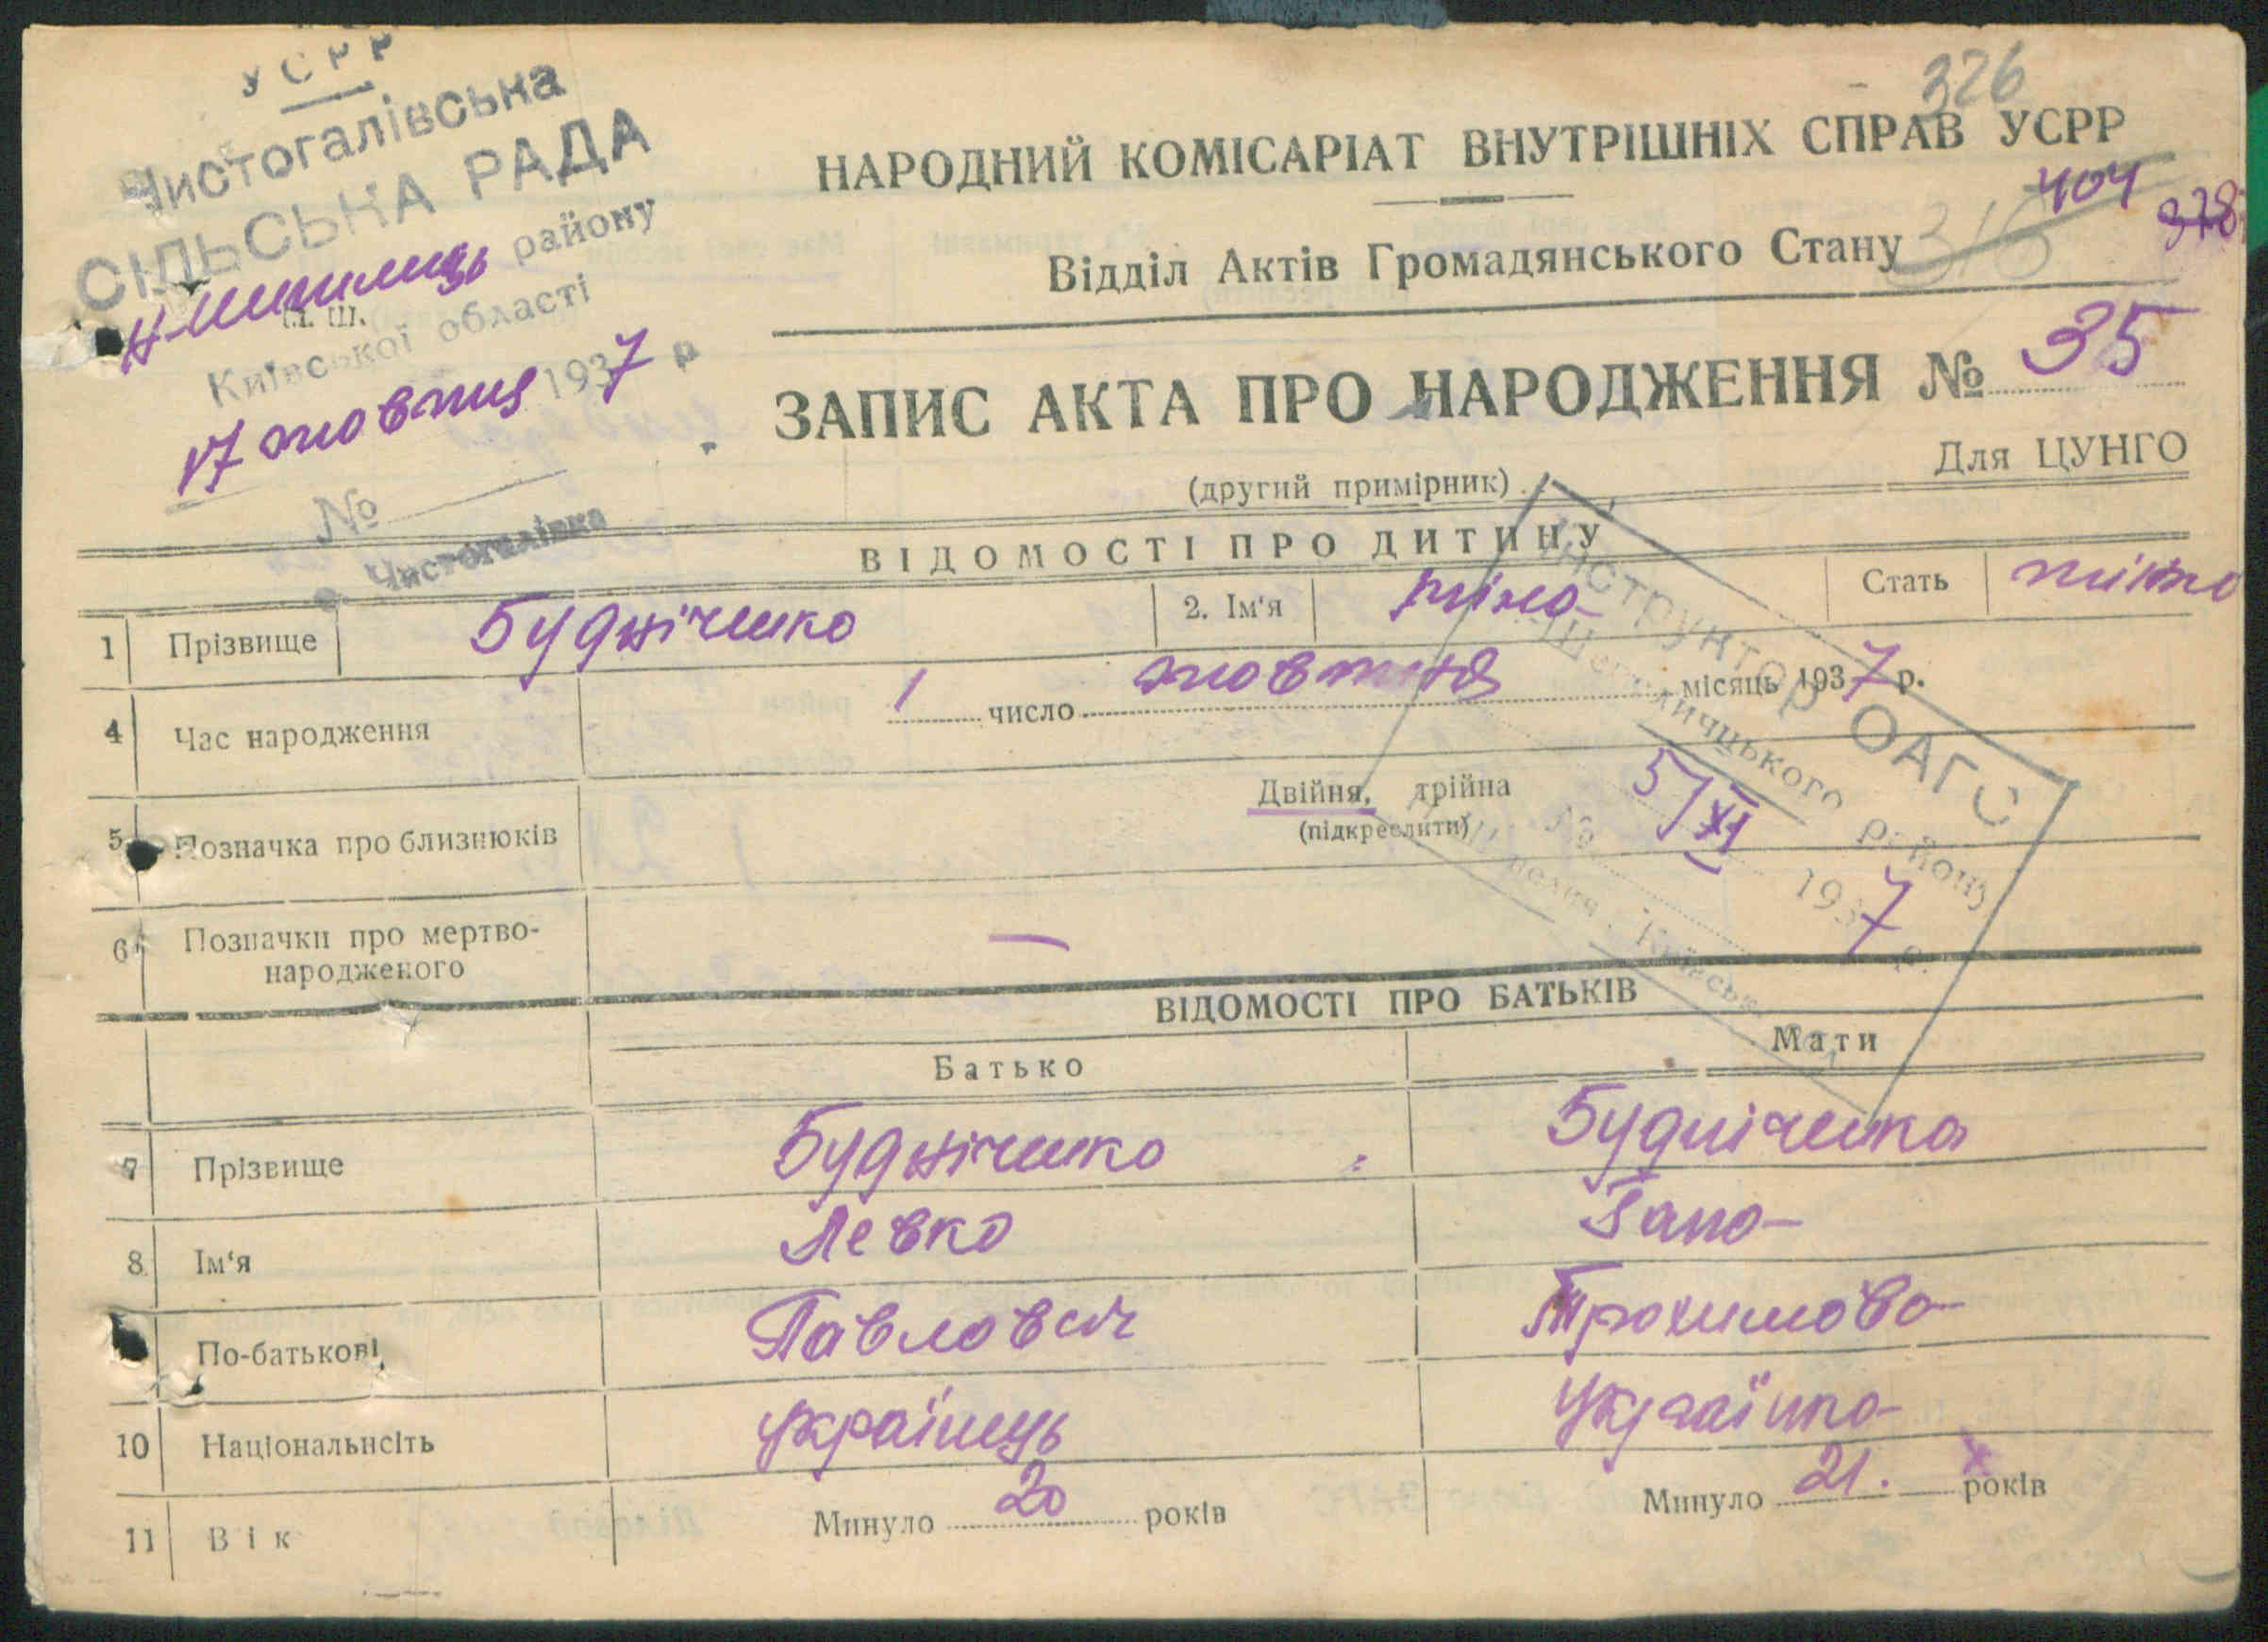 УСРР
Чистогалівська
СІЛЬСЬКА РАДА
району
Київської області
17 жовтня 1937 р
№
Чистогалівка
326
НАРОДНИЙ КОМІСАРІАТ ВНУТРІШНІХ СПРАВ УСРР
404
378
Відділ Актів Громадянського Стану 316
ЗАПИС АКТА ПРО НАРОДЖЕННЯ № 35
Для ЦУНГО
(другий примірник)
ВІДОМОСТІ ПРО ДИТИНУ
1 Прізвище Будніченко 2. Ім'я Стать
4 Час народження 1 число жовтня місяць 1937 р.
5 Позначка про близнюків Двійня, трійна
(підкреслити)
Інструктор ОАГС
району
№ 5/XI 1937 р.
6 Позначки про мертво-
народженого —
ВІДОМОСТІ ПРО БАТЬКІВ
Батько Мати
7 Прізвище Будніченко Будніченко
8 Ім'я Левко
По-батькові Павлович Трохимова
10 Національнсіть українець українка
11 Вік Минуло 20 років Минуло 21. років